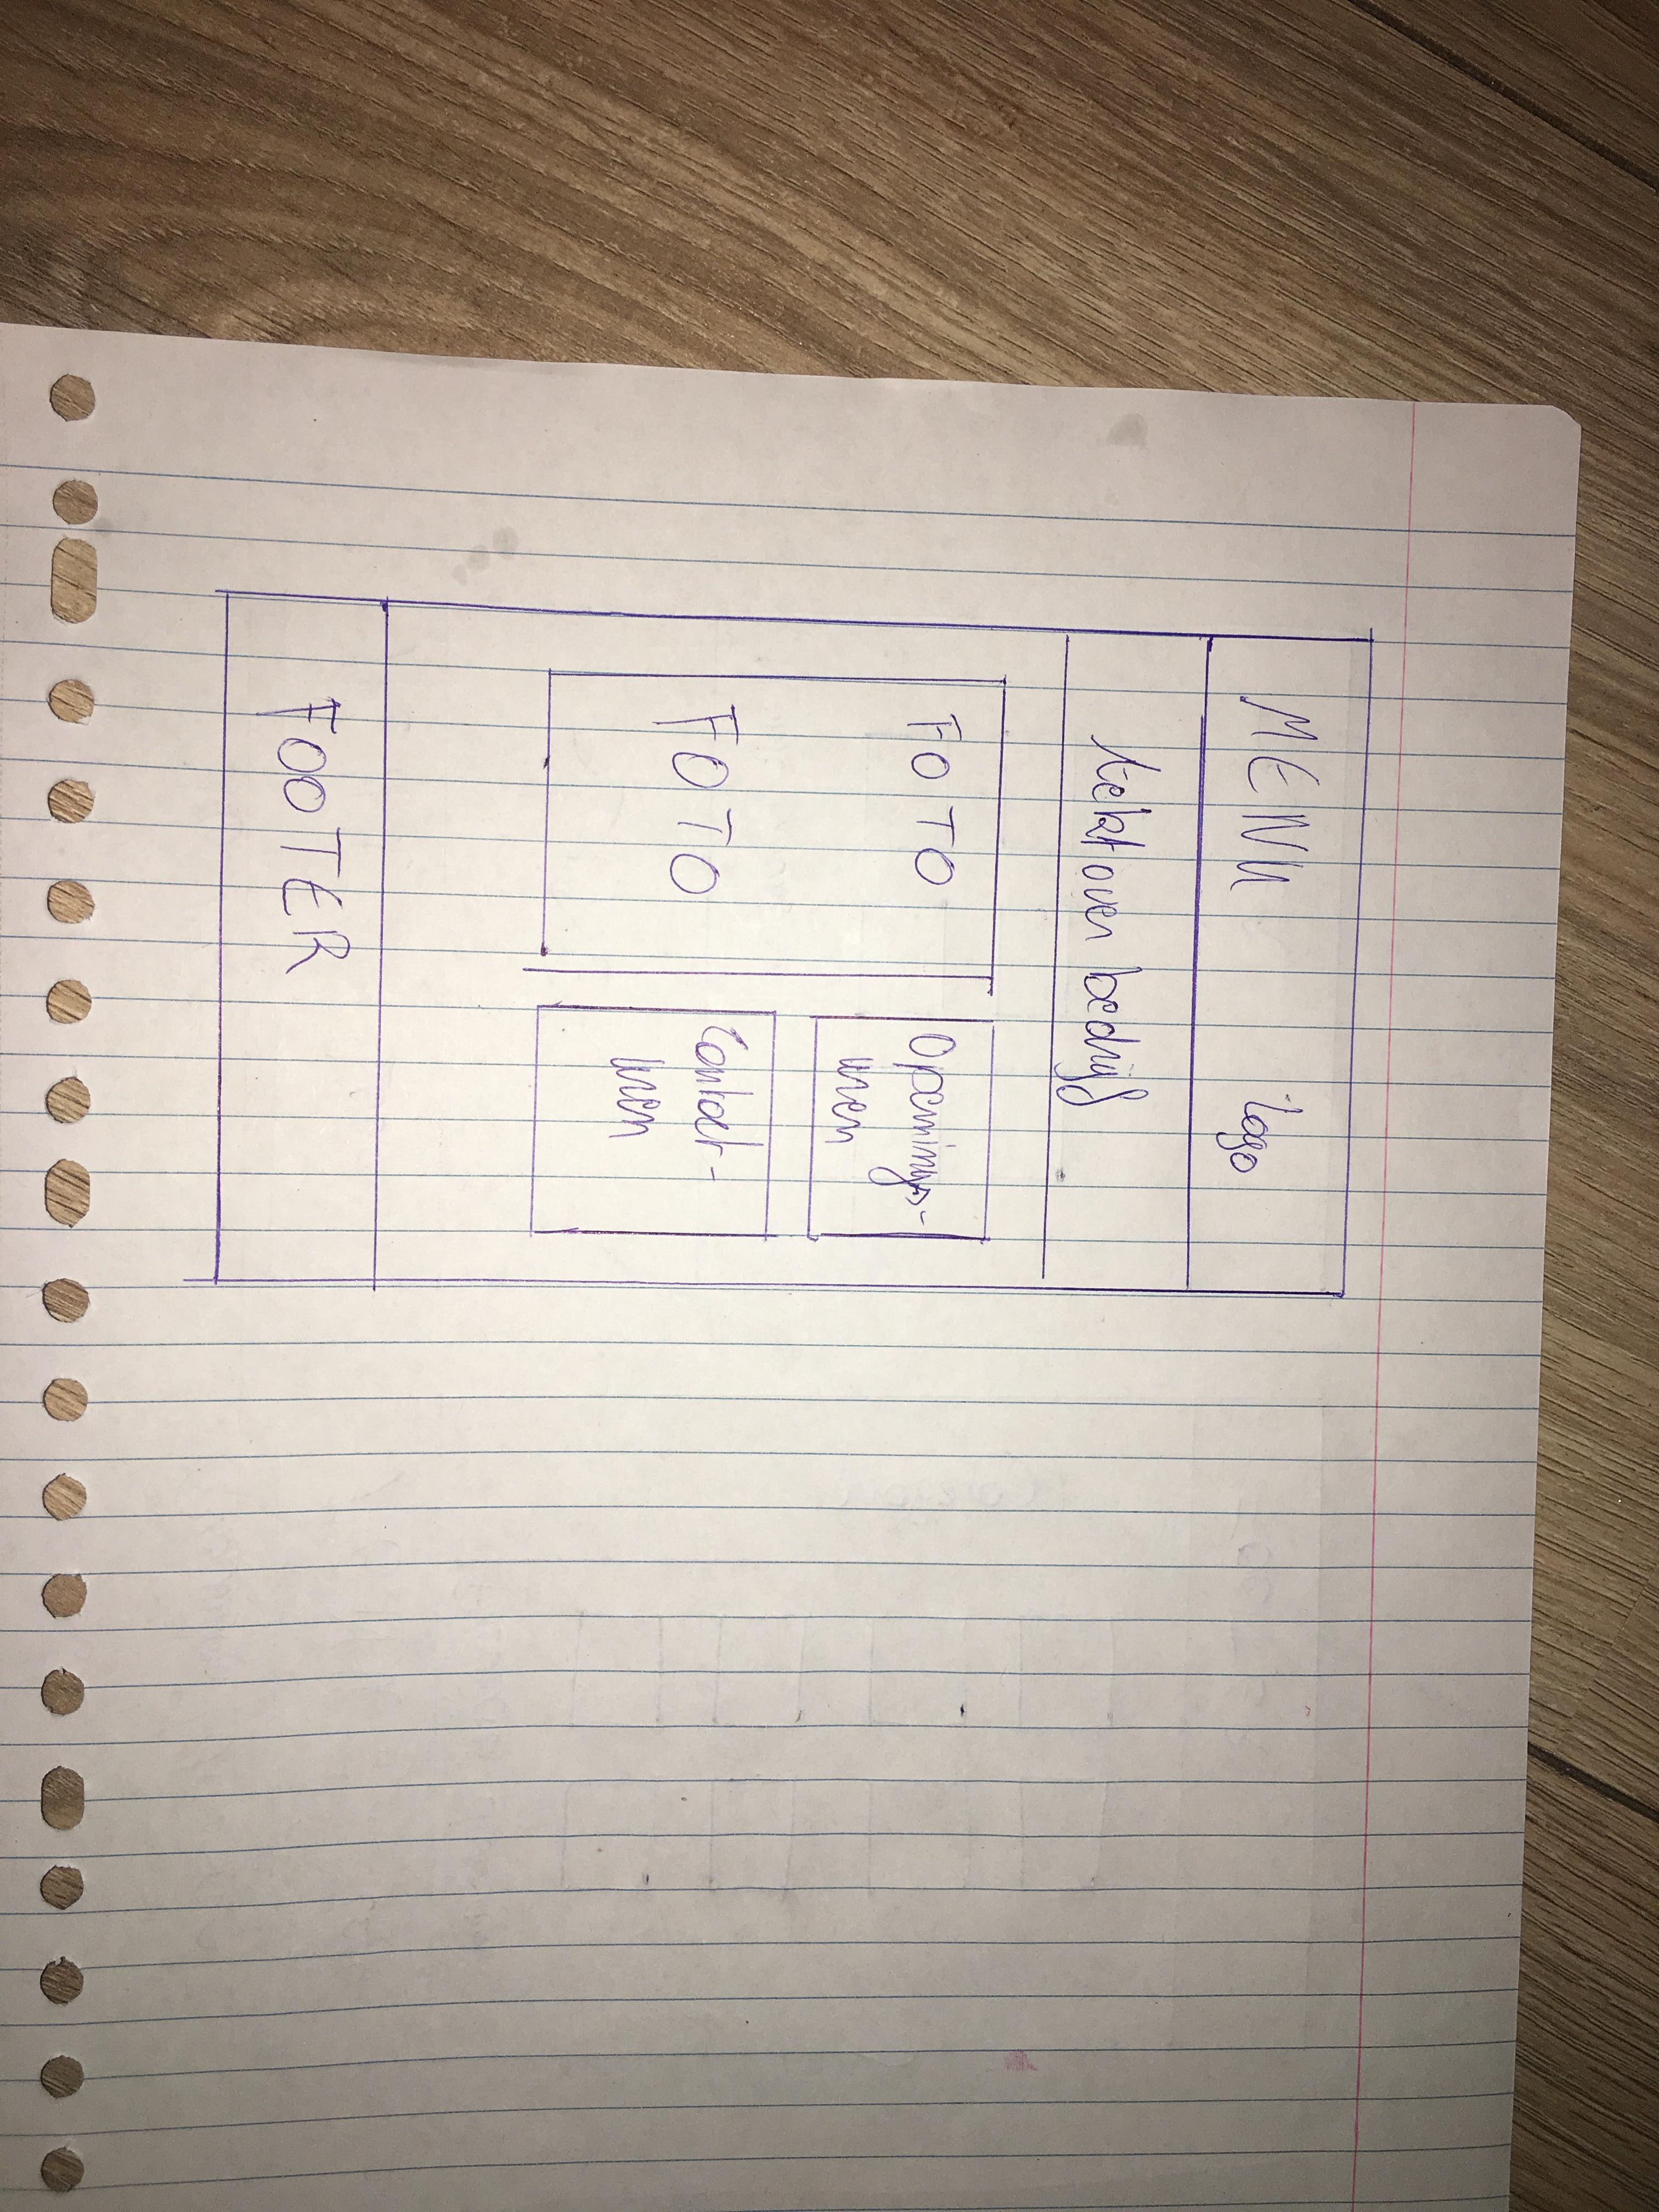 MENU logo
tekst over bedrijf
FOTO
FOTO
Openings-
uren
Contact-
uren
FOOTER